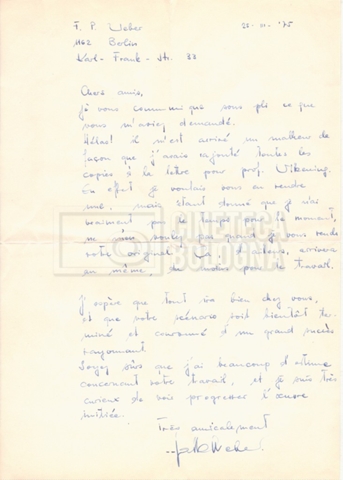 F. P. Weber 25-11-'75
1162 Berlin
Karl-Frank-Str. 33
Chers amis,
je vous communique sous pli ce que
vous m'aviez demandé.
Hélas! il m'est arrivé un malheur de
façon que j'avais rajouté toutes les
copies à la lettre pour prof. Vikening.
En effet je voulais vous en rendre
une, mais étant donné que je n'ai
vraiment pas le temps pour le moment,
ne m'en voulez pas quand je vous rende
votre original d'ailleurs, arrivera
en même pour le travail.
J'espère que tout va bien chez vous,
et que votre scénario soit bientôt ter
miné et couronné d'un grand succès
rayonnant.
Soyez sûrs que j'ai beaucoup d'estime
concernant votre travail, et je suis très
curieux de voir progresser l'œuvre
initiée.
Très amicalement
CINETECA
BOLOGNA